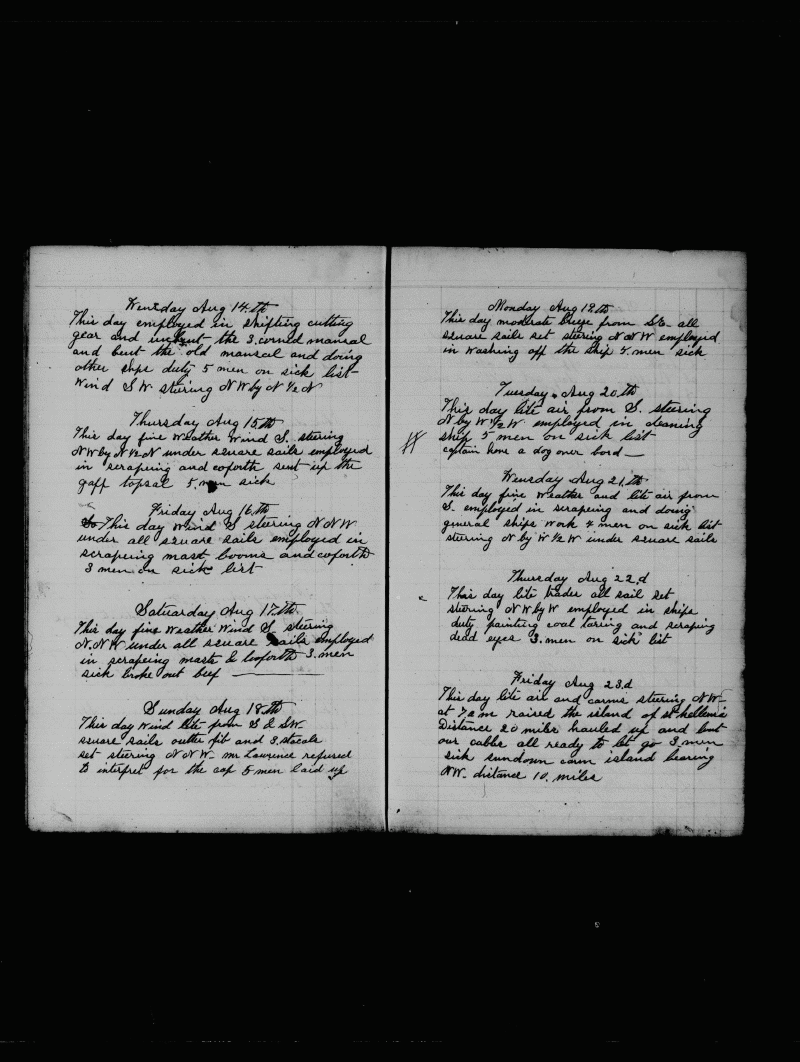 Wensday Aug 14.th
This day employed in shifting cutting
gear and unbent the 3.cornd mansal
and bent the old mansal and doing
other ships duty 5 men on sick list-
Wind S W steering N W by N ½ N
Thursday Aug 15th
This day fine Weather Wind S. steering
NW by N ½ N under square sails employed
in scrapeing and coforth sent up the
gaff topsal 5.men sick
Friday Aug 16.th
This day Wind S steering N N W
under all square sails employed in
scrapeing mast booms and coforth
3 men on sick list
Satuarday Aug 17.th
This day fine Weather Wind S. steering
N.N W under all square sails employed
in scrapeing masts & coforth 3.men
sick broke out beef
Sunday Aug 18th
This day Wind lite from S & SW.
square sails outter jib and 3.stacels
set steering N N W. mr Lawrence refused
to interpret for the cap 5 men laid up
Monday Aug 19th
This day moderate breze from SE. all
square sails set steering N N W employed
in washing off the ship 5.men sick
Tuesday. Aug 20th
This day lite air from S. steering
N by W ½ W employed in cleaning
ship 5 men on sick list
captain hove a dog over bord
Wensday Aug 21.th
This day fine Weather and lite air from
S. employed in scrapeing and doing
gineral ships work 4 men on sick list
steering N by W ½ W under square sails
Thursday Aug 22.d
This day lite trades all sail set
steering N W by W employed in ships
duty painting coal taring and scraping
dead eyes 3.men on sick list
Friday Aug 23.d
This day lite air and carms steering N W-
at 7,am raised the island of st hellena
Distance 20 miles hauled up and bent
our cabls all ready to let go 3 men
sick sundown carm island bearing
NW. distance 10. miles